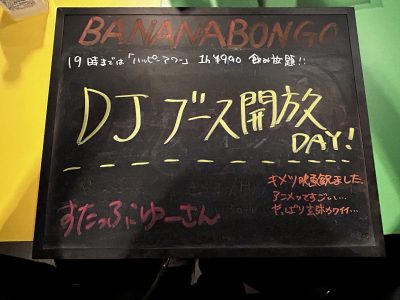 BANANABONGO
19時までは「ハッピーアワー」 1h¥990 飲み放題!!
DJ ブース開放
DAY!
キメツ映画観ました。
アニメってすごい…
やっぱり玄弥カワイイ…
すたっふ：ゆーさん